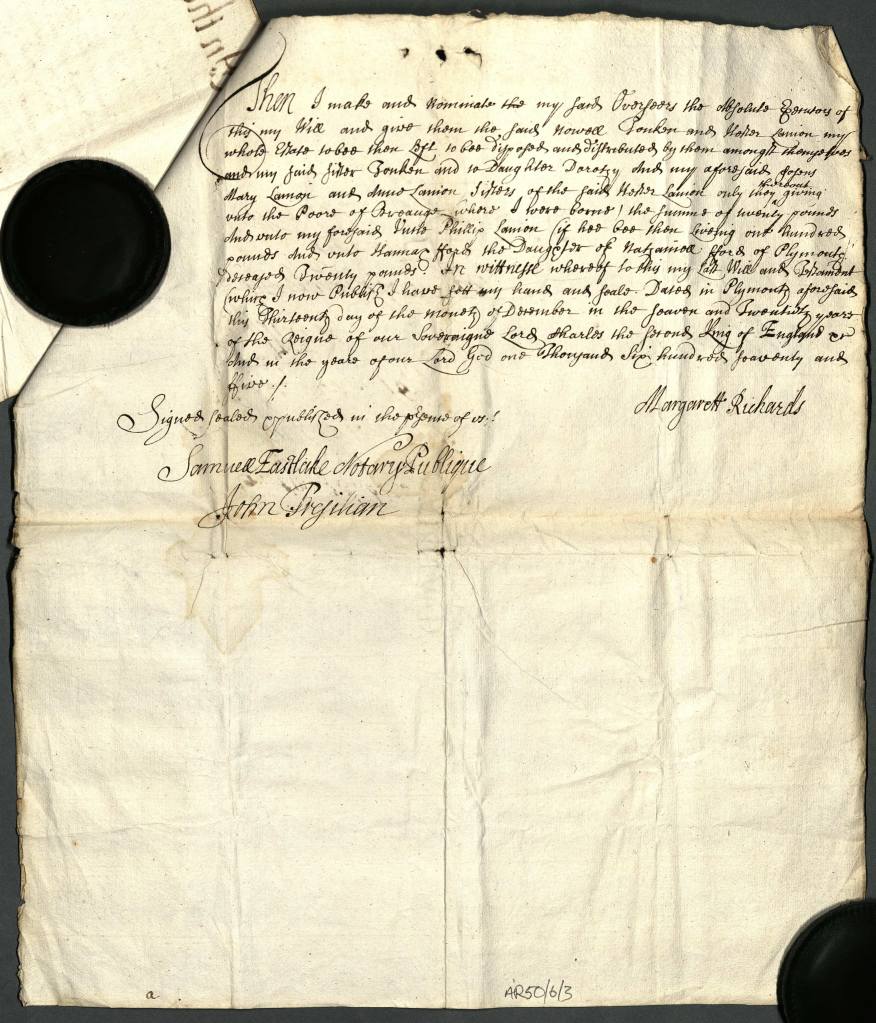 Then I make and Nominate the my said Overseers the absolute Executors of
this my Will and give them the said Nowell Tonken and Hester Lanion my
whole Estate to bee then left to bee disposed and distributed by them amongst themselves
and my said sister Tonken and to Daughter Dorothy And my aforesaid
Mary Lanion and Anne Lanion Sisters of the said Hester Lanion only they thereout giving
unto the Poore of Breauge (where I were borne) the summe of twenty pounds
And unto my foresaid Phillip Lanion (if hee bee then liveing) one hundred
pounds And unto Hannah fford the Daughter of Nathaniell fford of Plymouth
deceased Twenty pounds. In wittnesse whereof to this my last Will and Testament
(which I now Publish) I have sett my hand and seale Dated in Plymouth aforesaid
this Thirteenth day of the moneth of December in the seaven and Twentieth yeare
of the Reigne of our Soveraigne Lord Charles the second King of England &c
And in the yeare of our Lord God one Thousand Six hundred seaventy and
ffive ./.
Margarett Richards
Signed sealed & published in the presence of us:/
Samuell Eastlake Notary Publique
John Tresilian
a
AR50/6/3